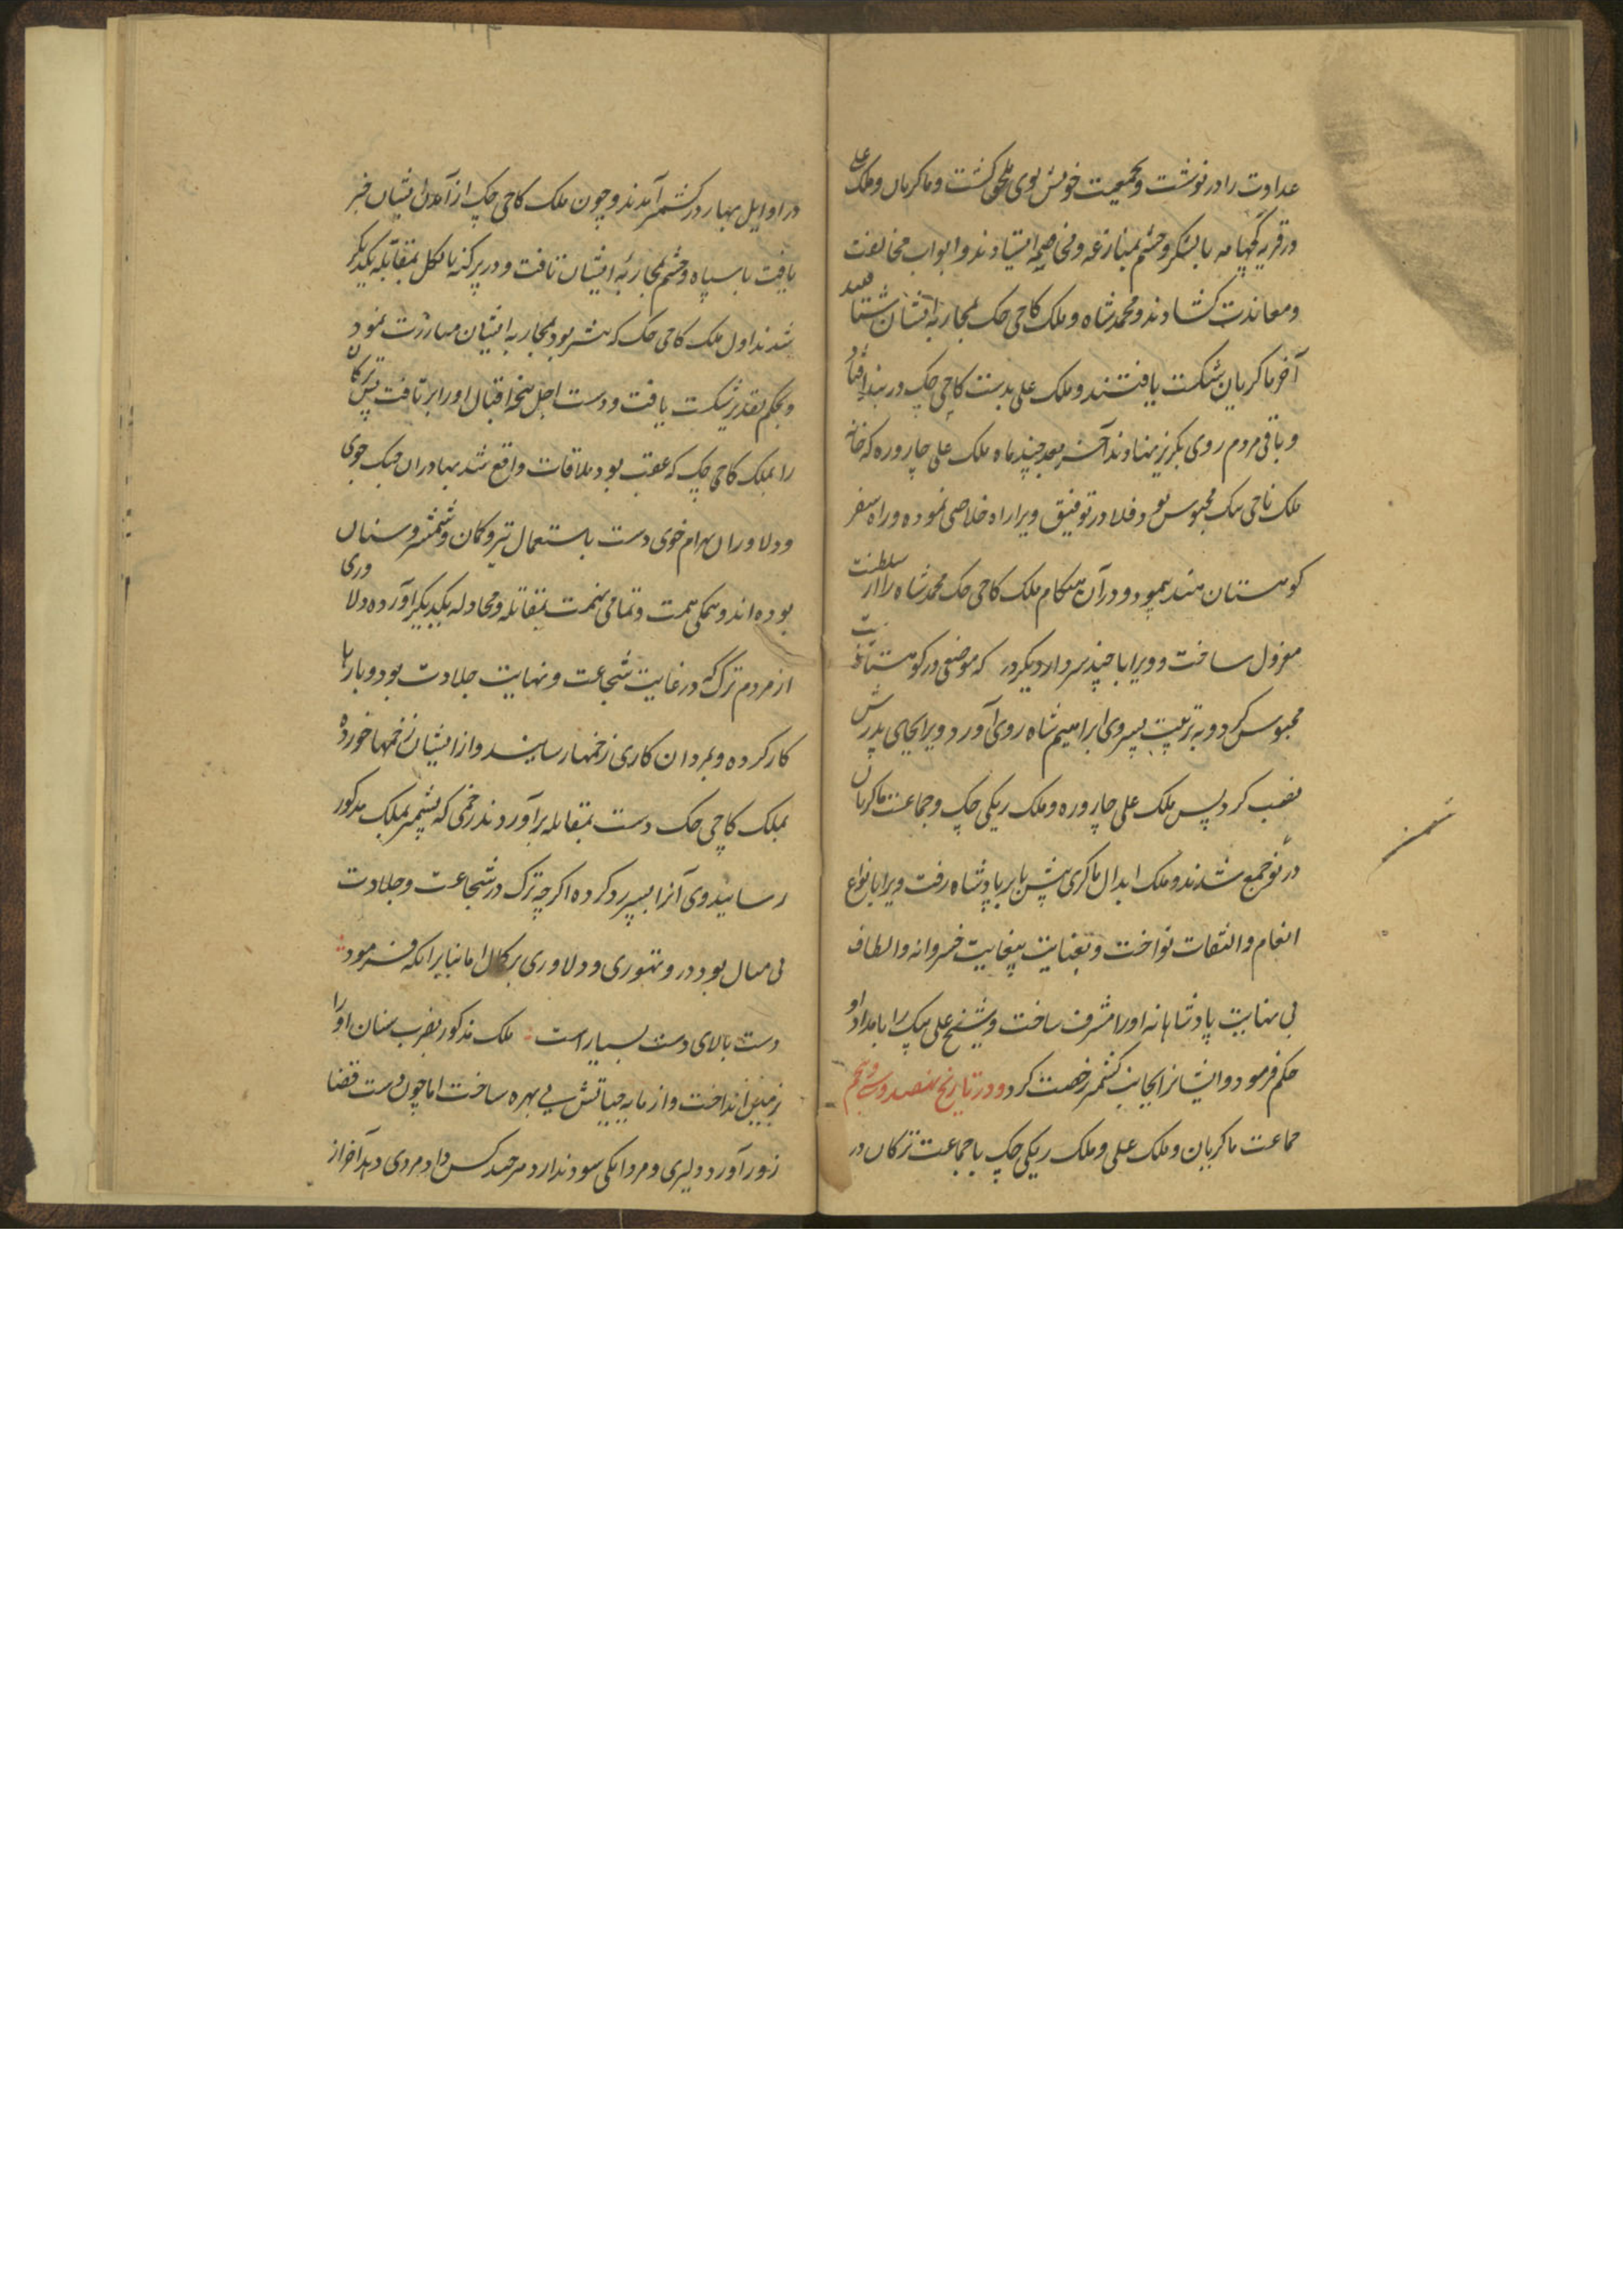 عداوت را در نوشت و بجمعیت خویش بوی ملحق گشت و ماکریان و ملک علی
در قریه کهپامه با لشکر و حشم بمنازعه و مخاصمه ایستادند و ابواب مخالفت
و معاندت کشادند و محمد شاه و ملک کاجی چک بمحاربه ایشان شتافتند
آخر ماکریان شکست یافتند و ملک علی بدست کاجی چک در بند افتاد
و باقی مردم روی بگریز نهادند آخر بعد چند ماه ملک علی چاروره که خانه
ملک ناجی ملک محبوس بود قلادر توفیق ویرا راه خلاصی نموده و راه سفر
کوهستان هند پیمود و در آن هنگام ملک کاجی چک محمد شاه را از سلطنت
معزول ساخت و ویرا با چند سردار دیگر در که موضعی در کوهستانست
محبوس کرد و به تربیت پسر وی ابراهیم شاه روی آورد و ویرا بجای پدرش
نصب کرد پس ملک علی چاروره و ملک ریکی چک و جماعت ماکریان
در نوشهر جمع شدند و ملک ابدال ماکری پیش بابر پادشاه رفت ویرا بانواع
انعام و التفات نواخت و بعنایت بیغایت خسروانه و الطاف
بی نهایت پادشاهانه او را مشرف ساخت و شیخ علی بیک را بامداد او
حکم فرمود و ایشانرا بجانب کشمیر رخصت کرد و در تاریخ نهصد و سی و پنجم
جماعت ماکریان و ملک علی و ملک ریکی چک با جماعت ترکان در
در اوایل بهار در کشمیر آمدند و چون ملک کاجی چک از آمدن ایشان خبر
یافت با سپاه و حشم بمحاربه ایشان تافت و در پرکنه بانکل بمقابله یکدیگر
شدند اول ملک کاجی چک که پیشتر بود بمحاربه ایشان مبارزت نمود
و بحکم تقدیر شکست یافت و دست اجل پنجه اقبال او را بر تافت پس ترکان
را بملک کاجی چک که عقب بود ملاقات واقع شد بهادران جنک جوی
و دلاوران بهرام خوی دست باستعمال تیر و کمان و شمشیر و سنان
بوده اند و همگی همت و تمامی نهمت بمقاتله و مجادله یکدیگر آورده دلاوری
از مردم ترک که در غایت شجاعت و نهایت جلادت بود و بارها
کار کرده و بمردان کاری زخمها رسانیده و از ایشان زخمها خورده
بملک کاجی چک دست بمقابله برآورد زخمی که بشمشیر بملک مذکور
رسانید وی آنرا بسپر رد کرده اگرچه ترک در شجاعت و جلادت
بی مثال بود و در تهوری و دلاوری بر کمال اما بنابر آنکه فرمود
دست بالای دست بسیار است ملک مذکور بضرب سنان او را
بزمین انداخت و از مایه حیاتش بی بهره ساخت اما چون دست قضا
زور آورد دلیری و مردانگی سود ندارد هر چند کس داد مردی دهد آخر از